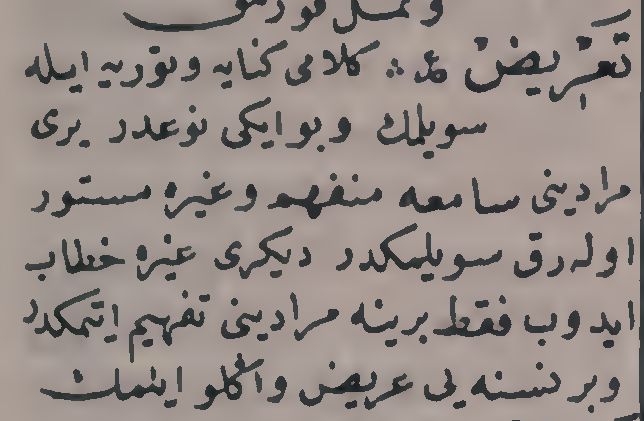 تعریض ع : کلامی کنایه وتوریه ایله
سویلمك وبو ایکی نوعدر بری
مرادینی سامعه منفهم وغیره مستور
اوله رق سویلمکدر دیکری غیره خطاب
ایدوب فقط برینه مرادینی تفهیم ایتمکدر
وبر نسنه یی عریض واکلو ایتمك